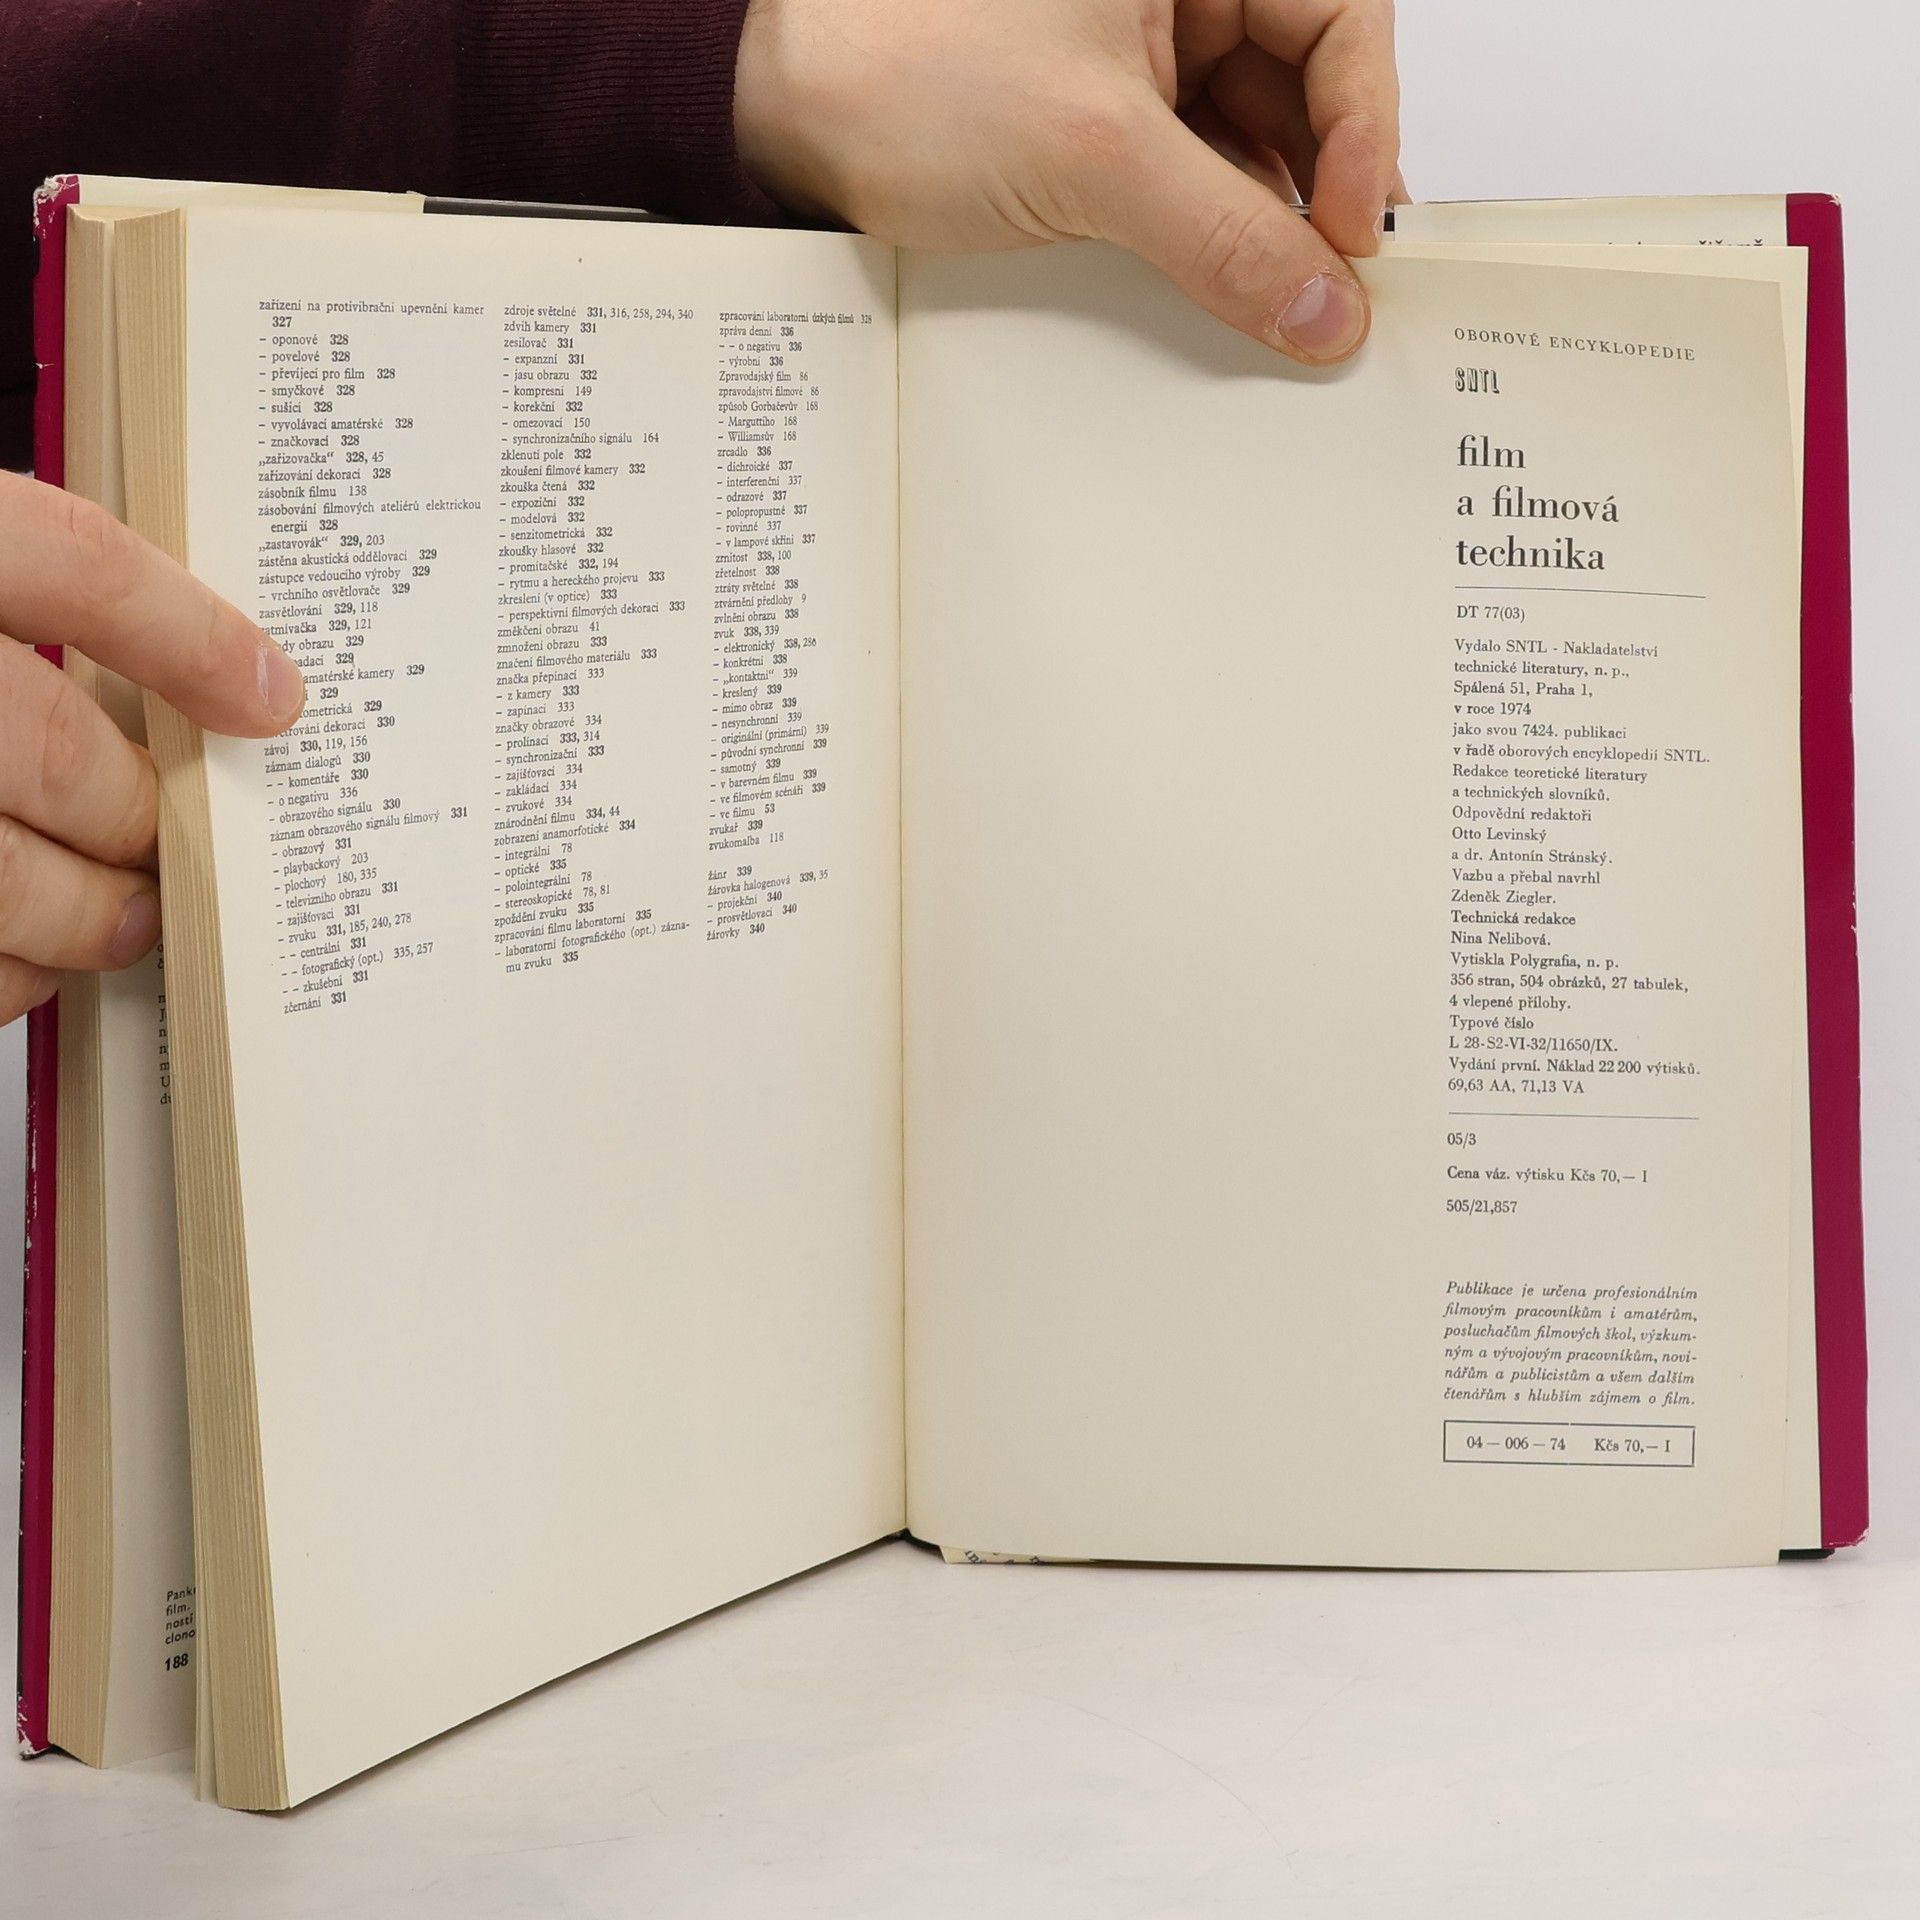 zařízení na protivibrační upevnění kamer
327
– oponové 328
– povelové 328
– převíjecí pro film 328
– smyčkové 328
– sušicí 328
– vyvolávací amatérské 328
– značkovací 328
„zařizovačka“ 328, 45
zařizování dekorací 328
zásobník filmu 138
zásobování filmových ateliérů elektrickou
energií 328
„zastavovák“ 329, 203
zástěna akustická oddělovací 329
zástupce vedoucího výroby 329
– vrchního osvětlovače 329
zasvětlování 329, 118
zatmívačka 329, 121
obrazu 329
329
amatérské kamery 329
329
329
dekorací 330
závoj 330, 119, 156
záznam dialogů 330
– – komentáře 330
– o negativu 336
– obrazového signálu 330
záznam obrazového signálu filmový 331
– obrazový 331
– playbackový 203
– plochový 180, 335
– televizního obrazu 331
– zajišťovací 331
– zvuku 331, 185, 240, 278
– – centrální 331
– – fotografický (opt.) 335, 257
– – zkušební 331
zčernání 331
zdroje světelné 331, 316, 258, 294, 340
zdvih kamery 331
zesilovač 331
– expanzní 331
– jasu obrazu 332
– kompresní 149
– korekční 332
– omezovací 150
– synchronizačního signálu 164
zklenutí pole 332
zkoušení filmové kamery 332
zkouška čtená 332
– expoziční 332
– modelová 332
– senzitometrická 332
zkoušky hlasové 332
– promítačské 332, 194
– rytmu a hereckého projevu 333
zkreslení (v optice) 333
– perspektivní filmových dekorací 333
změkčení obrazu 41
zmnožení obrazu 333
značení filmového materiálu 333
značka přepínací 333
– z kamery 333
– zapínací 333
značky obrazové 334
– prolínací 333, 314
– synchronizační 333
– zajišťovací 334
– zakládací 334
– zvukové 334
znárodnění filmu 334, 44
zobrazení anamorfotické 334
– integrální 78
– optické 335
– polointegrální 78
– stereoskopické 78, 81
zpoždění zvuku 335
zpracování filmu laboratorní 335
– laboratorní fotografického (opt.) zázna-
mu zvuku 335
zpracování laboratorní úzkých filmů 328
zpráva denní 336
– – o negativu 336
– výrobní 336
Zpravodajský film 86
zpravodajství filmové 86
způsob Gorbačevův 168
– Marguttiho 168
– Williamsův 168
zrcadlo 336
– dichroické 337
– interferenční 337
– odrazové 337
– polopropustné 337
– rovinné 337
– v lampové skříni 337
zrnitost 338, 100
zřetelnost 338
ztráty světelné 338
ztvárnění předlohy 9
zvlnění obrazu 338
zvuk 338, 339
– elektronický 338, 286
– konkrétní 338
– „kontaktní“ 339
– kreslený 339
– mimo obraz 339
– nesynchronní 339
– originální (primární) 339
– původní synchronní 339
– samotný 339
– v barevném filmu 339
– ve filmovém scénáři 339
– ve filmu 53
zvukař 339
zvukomalba 118
žánr 339
žárovka halogenová 339, 35
– projekční 340
– prosvětlovací 340
žárovky 340
film.
ností
188
OBOROVÉ ENCYKLOPEDIE
SNTL
film
a filmová
technika
DT 77(03)
Vydalo SNTL - Nakladatelství
technické literatury, n. p.,
Spálená 51, Praha 1,
v roce 1974
jako svou 7424. publikaci
v řadě oborových encyklopedií SNTL.
Redakce teoretické literatury
a technických slovníků.
Odpovědní redaktoři
Otto Levinský
a dr. Antonín Stránský.
Vazbu a přebal navrhl
Zdeněk Ziegler.
Technická redakce
Nina Nelibová.
Vytiskla Polygrafia, n. p.
356 stran, 504 obrázků, 27 tabulek,
4 vlepené přílohy.
Typové číslo
L 28-S2-VI-32/11650/IX.
Vydání první. Náklad 22 200 výtisků.
69,63 AA, 71,13 VA
05/3
Cena váz. výtisku Kčs 70,— I
505/21,857
Publikace je určena profesionálním
filmovým pracovníkům i amatérům,
posluchačům filmových škol, výzkum-
ným a vývojovým pracovníkům, novi-
nářům a publicistům a všem dalším
čtenářům s hlubším zájmem o film.
04 — 006 — 74 Kčs 70,— I